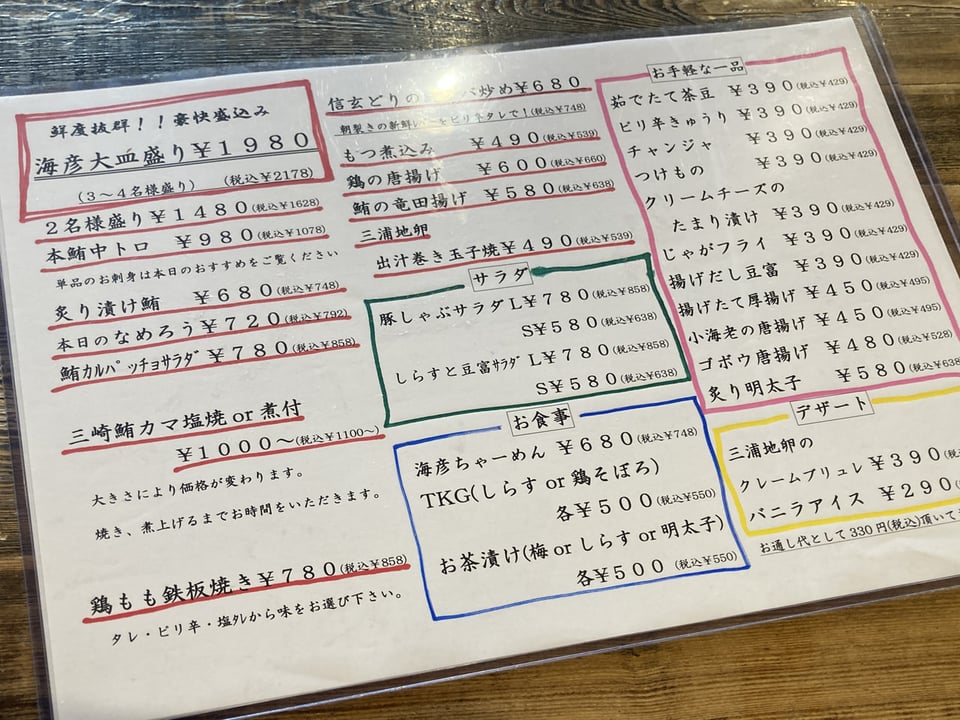 鮮度抜群！！豪快盛込み
海彦大皿盛り￥1980
(3～4名様盛り) (税込￥2178)
2名様盛り￥1480(税込￥1628)
本鮪中トロ ￥980(税込￥1078)
単品のお刺身は本日のおすすめをご覧ください
炙り漬け鮪 ￥680(税込￥748)
本日のなめろう￥720(税込￥792)
鮪カルパッチョサラダ￥780(税込￥858)
三崎鮪カマ塩焼or煮付
￥1000～(税込￥1100～)
大きさにより価格が変わります。
焼き、煮上げるまでお時間をいただきます。
鶏もも鉄板焼き￥780(税込￥858)
タレ・ピリ辛・塩タレから味をお選び下さい。
信玄どりの バ炒め￥680
朝製きの新鮮 をピリ辛タレで！(税込￥748)
もつ煮込み ￥490(税込￥539)
鶏の唐揚げ ￥600(税込￥660)
鮪の竜田揚げ ￥580(税込￥638)
三浦地卵
出汁巻き玉子焼￥490(税込￥539)
サラダ
豚しゃぶサラダL￥780(税込￥858)
S￥580(税込￥638)
しらすと豆富サラダ L￥780(税込￥858)
S￥580(税込￥638)
お食事
海彦ちゃーめん ￥680(税込￥748)
TKG(しらすor鶏そぼろ)
各￥500(税込￥550)
お茶漬け(梅orしらすor明太子)
各￥500 (税込￥550)
お手軽な一品
茹でたて茶豆 ￥390(税込￥429)
ピリ辛きゅうり ￥390(税込￥429)
チャンジャ ￥390(税込￥429)
つけもの ￥390(税込￥429)
クリームチーズの
たまり漬け ￥390(税込￥429)
じゃがフライ ￥390(税込￥429)
揚げだし豆富 ￥390(税込￥429)
揚げたて厚揚げ ￥450(税込￥495)
小海老の唐揚げ ￥450(税込￥495)
ゴボウ唐揚げ ￥480(税込￥528)
炙り明太子 ￥580(税込￥638)
デザート
三浦地卵の
クレームブリュレ￥390(税込
バニラアイス ￥290(
お通し代として330円(税込)頂いて